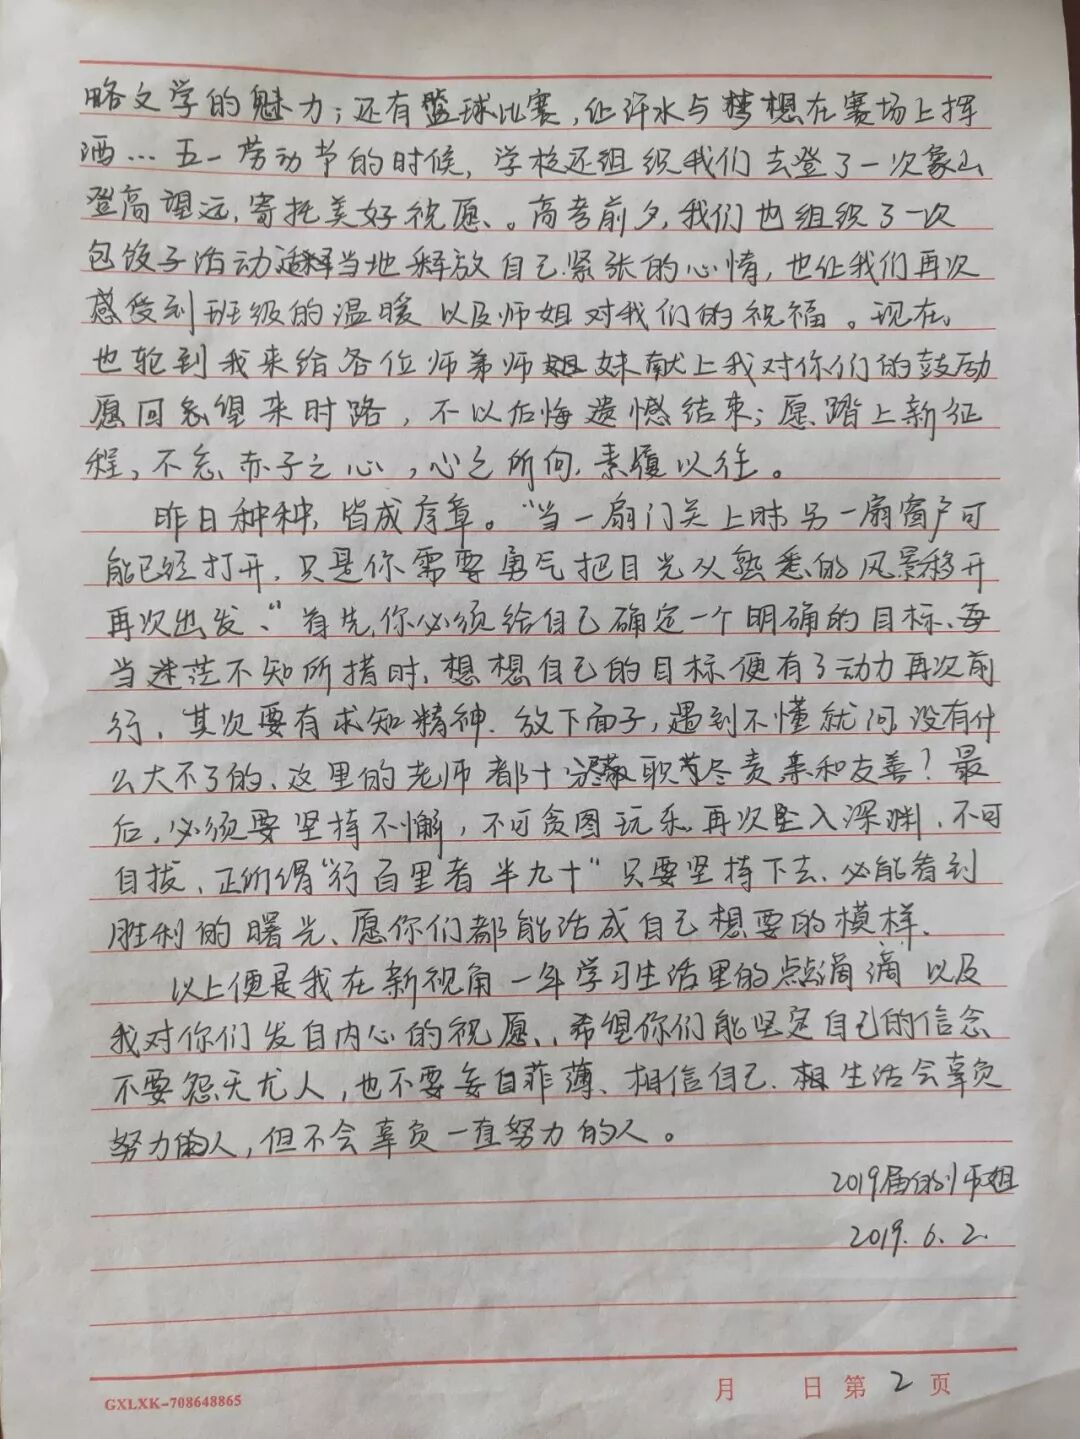 略文学的魅力；还有篮球比赛，让汗水与梦想在赛场上挥
洒…五一劳动节的时候，学校还组织我们去登了一次象山
登高望远，寄托美好祝愿、。高考前夕，我们也组织了一次
包饺子活动适释当地释放自己紧张的心情，也让我们再次
感受到班级的温暖 以及师姐对我们的祝福。现在，
也轮到我来给各位师弟师妹献上我对你们的鼓励
愿回忽望来时路，不以后悔遗憾结束；愿踏上新征
程，不忘赤子之心，心之所向，素履以往。
昨日种种，皆成序章。“当一扇门关上时另一扇窗户可
能已经打开，只是你需要勇气把目光从熟悉的风景移开
再次出发、”首先，你必须给自己确定一个明确的目标、每
当迷茫不知所措时，想想自己的目标便有了动力再次前
行，其次要有求知精神．放下面子，遇到不懂就问没有什
么大不了的、这里的老师都十分敬职尽责亲和友善？最
后，必须要坚持不懈，不可贪图玩乐再次坠入深渊、不可
自拔、正所谓“行百里者半九十”只要坚持下去、必能看到
胜利的曙光、愿你们都能活成自己想要的模样．
以上便是我在新视角一年学习生活里的点点滴滴 以及
我对你们发自内心的祝愿、，希望你们能坚定自己的信念
不要怨天尤人，也不要妄自菲薄、相信自己．相生活会辜负
努力的人，但不会辜负一直努力的人。
2019届的师姐
2019.6.2.
GXLXK-708648865
月 日 第 2 页